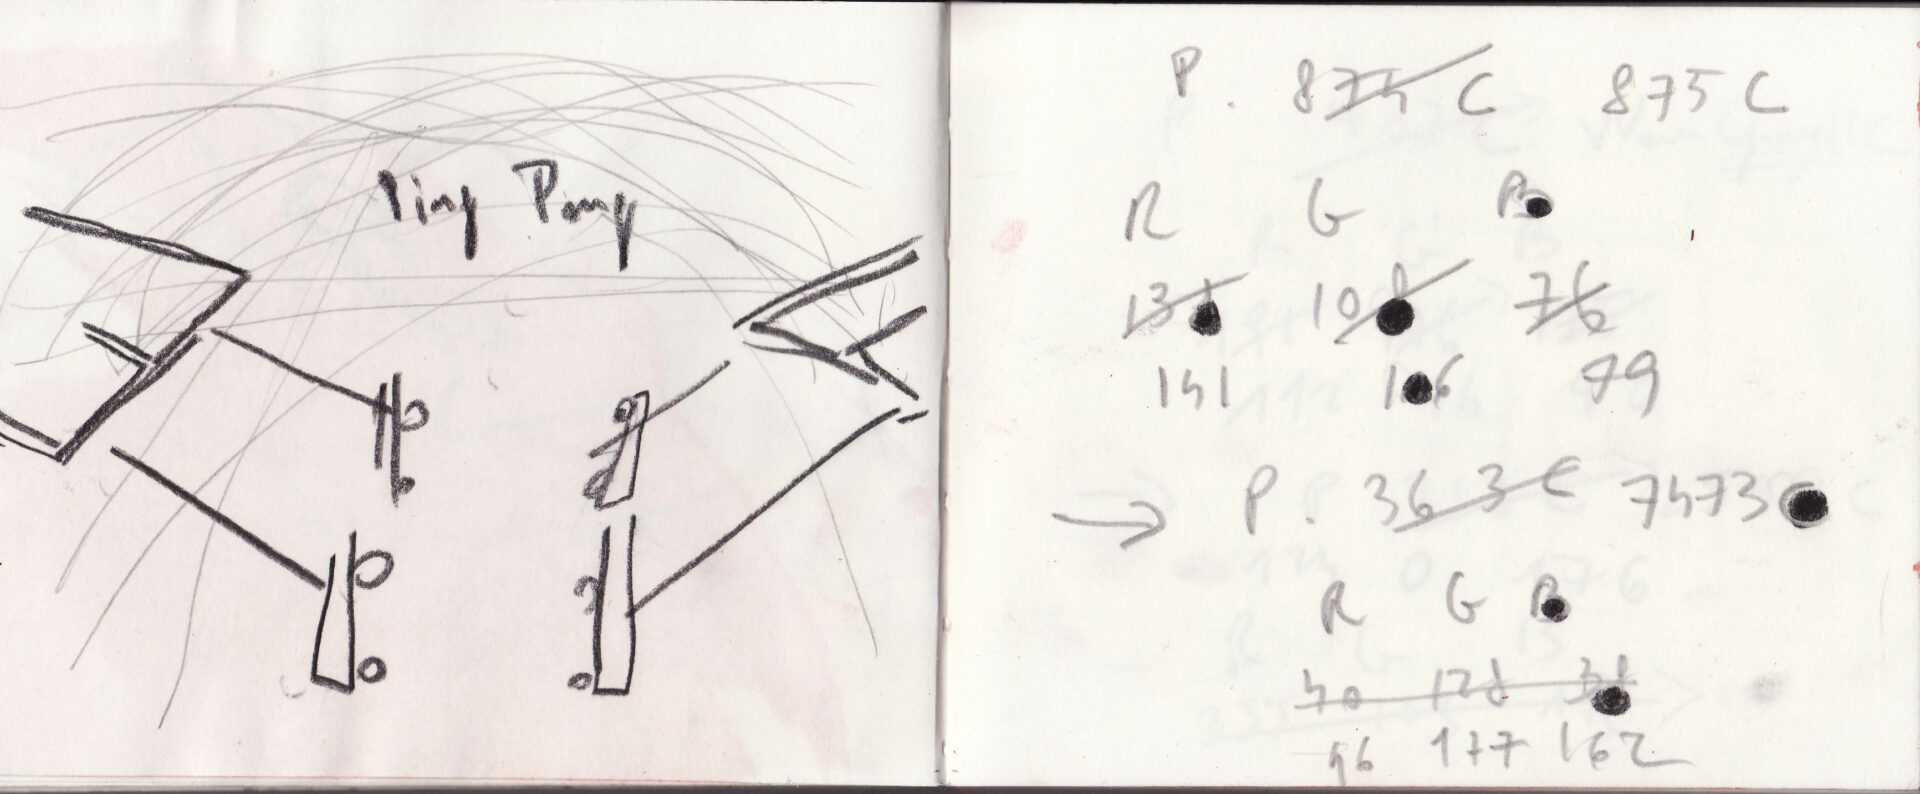 Ping Pong
P. 874 C 875 C
R G B
131 108 76
141 106 79
→ P. 363 C 7473 C
R G B
40 128 38
46 177 162